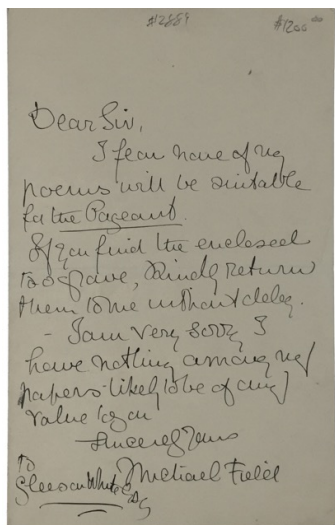 #12889 $1200.00
Dear Sir,
I fear none of my
poems will be suitable
for the Pageant.
If you find the enclosed
too grave, kindly return
them to me without delay.
- I am very sorry I
have nothing among my
papers likely to be of any
value to you
Sincerely Yours
Michael Field
To
Gleeson White Esq